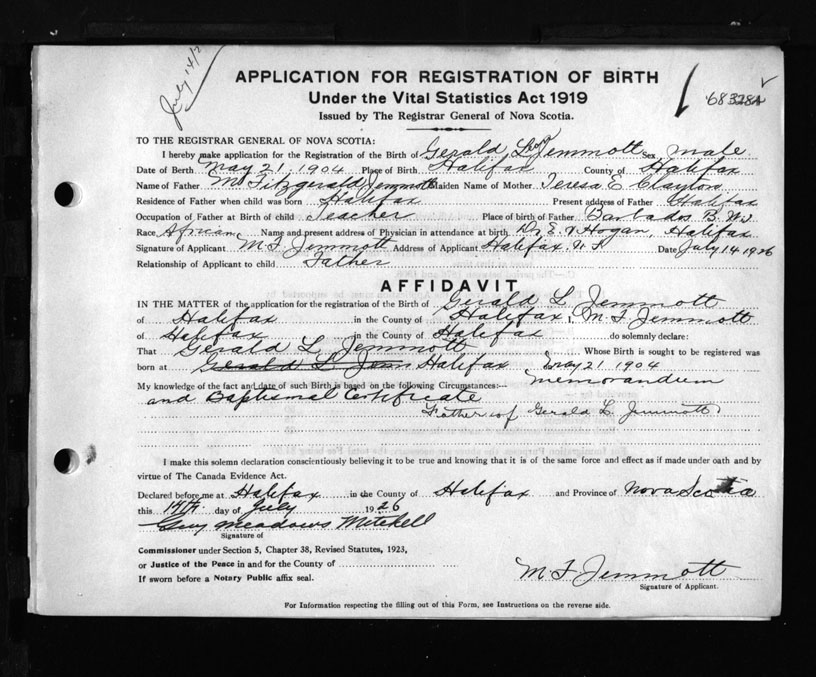 July 14/2
APPLICATION FOR REGISTRATION OF BIRTH
68328A
Under the Vital Statistics Act 1919
Issued by The Registrar General of Nova Scotia.
TO THE REGISTRAR GENERAL OF NOVA SCOTIA:
I hereby make application for the Registration of the Birth of Gerald Jemmott Sex male
Date of Birth May 21, 1904 Place of Birth Halifax County of Halifax
Name of Father M. Fitzgerald Jemmott Maiden Name of Mother Teresa E Clayton
Residence of Father when child was born Halifax Present address of Father Halifax
Occupation of Father at Birth of child Teacher Place of birth of Father Barbados B. W. I
Race African Name and present address of Physician in attendance at birth Dr E. V Hogan, Halifax
Signature of Applicant M. F. Jemmott Address of Applicant Halifax N. S. Date July 14 1926
Relationship of Applicant to child Father
AFFIDAVIT
IN THE MATTER of the application for the registration of the Birth of Gerald L Jemmott
of Halifax in the County of Halifax I, M. F. Jemmott
of Halifax in the County of Halifax do solemnly declare:
That Gerald L. Jemmott Whose Birth is sought to be registered was
born at Gerald L Jem Halifax May 21 1904
My knowledge of the fact and date of such Birth is based on the following Circumstances:-- memorandum
and Baptismal Certificate
Father of Gerald L. Jemmott
I make this solemn declaration conscientiously believing it to be true and knowing that it is of the same force and effect as if made under oath and by
virtue of The Canada Evidence Act.
Declared before me at Halifax in the County of Halifax and Province of Nova Scotia
this 14th day of July 1926
Guy Meadows Mitchell
Signature of
Commissioner under Section 5, Chapter 38, Revised Statutes, 1923,
or Justice of the Peace in and for the County of
If sworn before a Notary Public affix seal.
M F Jemmott
Signature of Applicant.
For Information respecting the filling out of this Form, see Instructions on the reverse side.